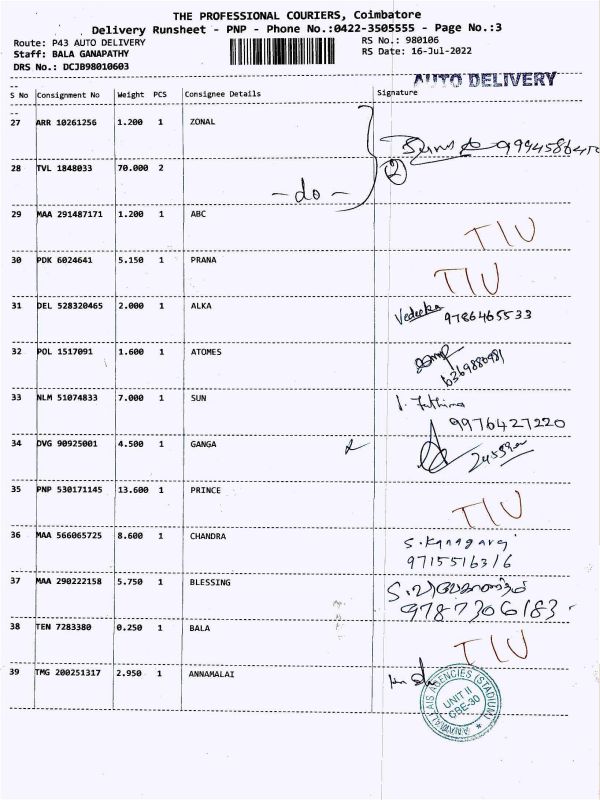 THE PROFESSIONAL COURIERS, Coimbatore
Delivery Runsheet - PNP - Phone No.:0422-3505555 - Page No.:3
Route: P43 AUTO DELIVERY RS No.: 980106
Staff: BALA GANAPATHY RS Date: 16-Jul-2022
DRS No.: DCJB98010603
AUTO DELIVERY
S No Consignment No Weight PCS Consignee Details Signature
27 ARR 10261256 1.200 1 ZONAL
28 TVL 1848033 70.000 2
2
- do -
29 MAA 291487171 1.200 1 ABC
TIU
30 PDK 6024641 5.150 1 PRANA
TIU
31 DEL 528320465 2.000 1 ALKA
9786465533
32 POL 1517091 1.600 1 ATOMES
33 NLM 51074833 7.000 1 SUN
9976427220
34 DVG 90925001 4.500 1 GANGA
35 PNP 530171145 13.600 1 PRINCE
TIU
36 MAA 566065725 8.600 1 CHANDRA
S. Kanagaraj
9715516316
37 MAA 290222158 5.750 1 BLESSING
9787306183
38 TEN 7283380 0.250 1 BALA
TIU
39 TMG 200251317 2.950 1 ANNAMALAI
ANAMALLAIS AGENCIES (STADIUM)
UNIT II
CBE-30